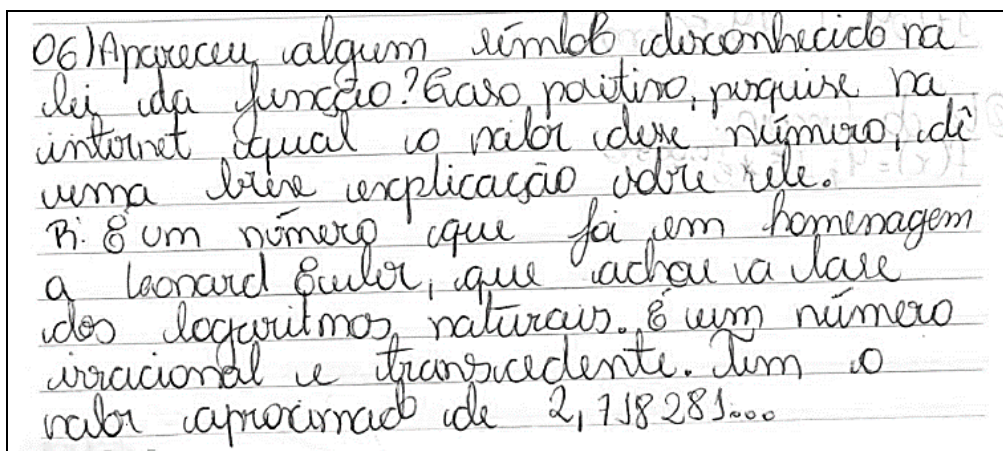 06) Apareceu algum símbolo desconhecido na
lei da função? Caso positivo, pesquise na
internet qual o valor desse número, dê
uma breve explicação sobre ele.
R: É um número que foi em homenagem
a Leonard Euler, que achou a base
dos logaritmos naturais. É um número
irracional e transcedente. Tem o
valor aproximado de 2,718281...